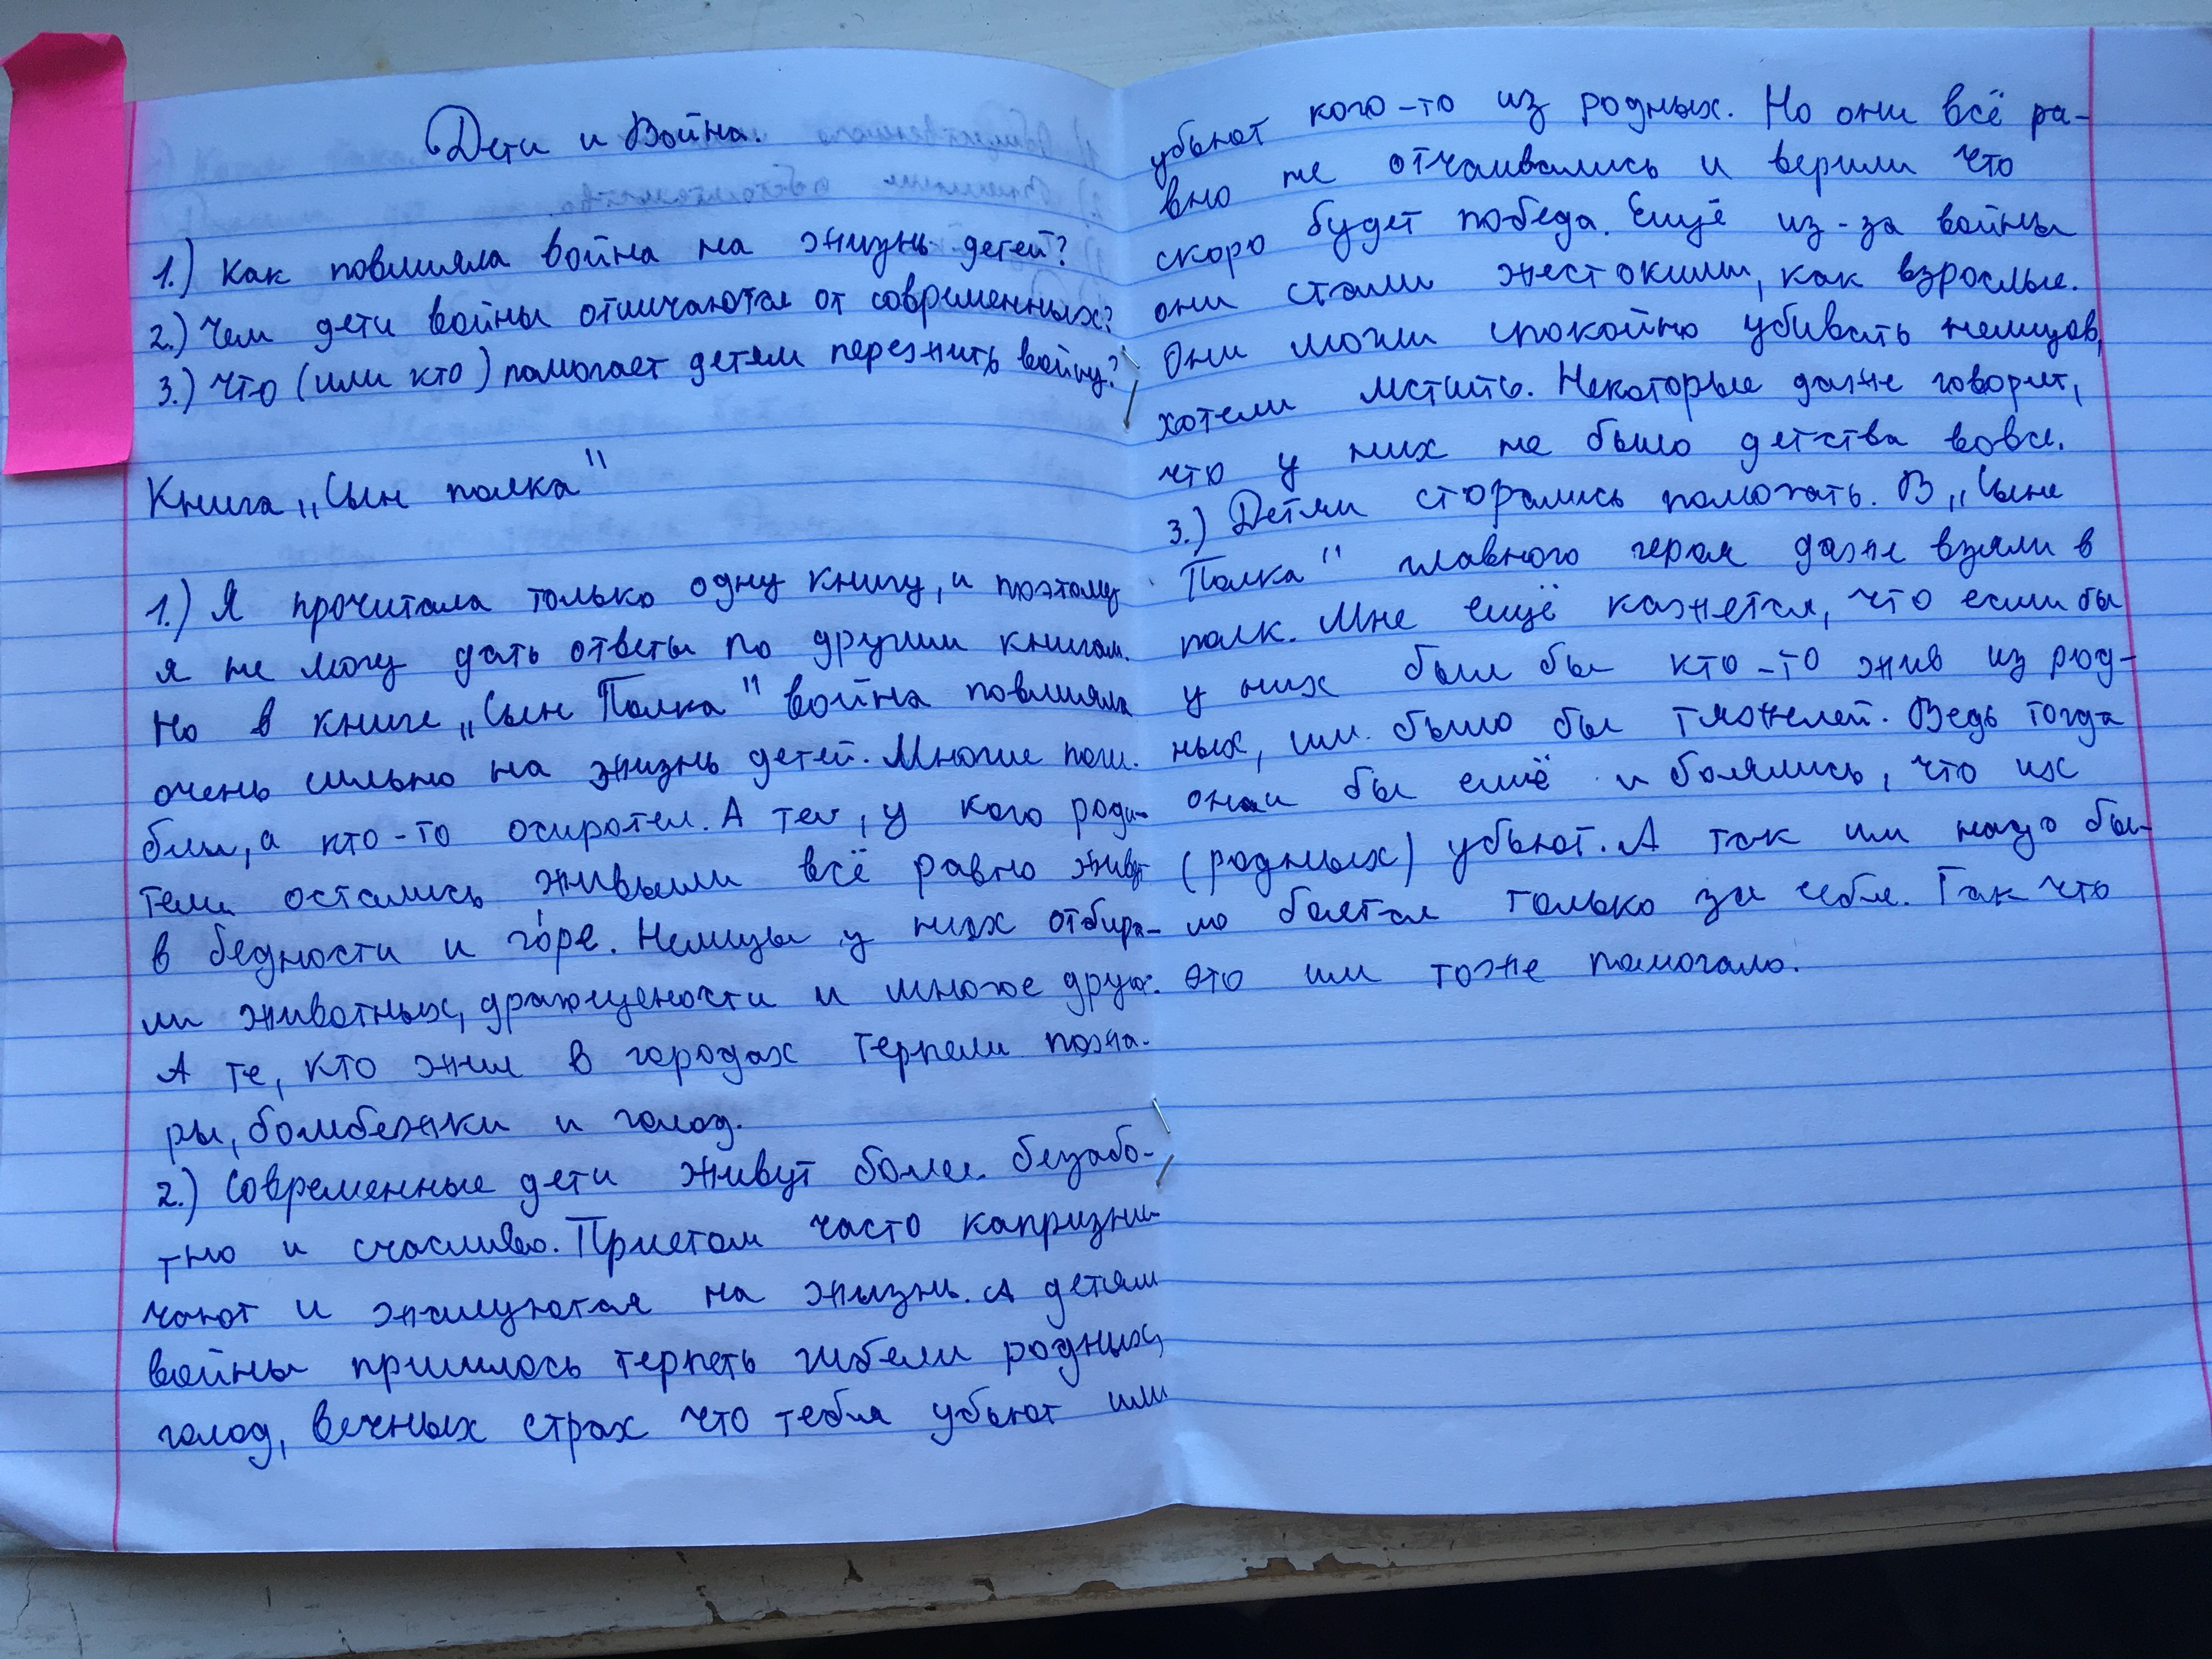 Дети и Война.
1.) Как повлияла война на жизнь детей?
2.) Чем дети войны отличаются от современных?
3.) Что (или кто) помогает детям пережить войну?
Книга „Сын полка"
1.) Я прочитала только одну книгу, и поэтому
я не могу дать ответы по другим книгам.
Но в книге „Сын Полка" война повлияла
очень сильно на жизнь детей. Многие поги-
бли, а кто-то осиротел. А те, у кого роди-
тели остались живыми всё равно живут
в бедности и го́ре. Немцы у них отбира-
ли животных, драгоцености и многое друг.
А те, кто жил в городах терпели пожа-
ры, бомбежки и голод.
2.) Современные дети живут более беззабо-
тно и счасливо. Приетом часто капризни-
чают и жалуются на жизнь. А детям
войны пришлось терпеть гибели родных,
голод, вечных страх что тебя убьют или
убьют кого-то из родных. Но они всё ра-
вно не отчаивались и верили что
скоро будет победа. Ещё из-за войны
они стали жестокими, как взрослые.
Они могли спокойно убивать немцов,
хотели мстить. Некоторые даже говорят,
что у них не было детства вовсе.
3.) Детям сторались помогать. В „Сыне
Полка" главного героя даже взяли в
полк. Мне ещё кажется, что если бы
у них был бы кто-то жив из род-
ных, им было бы тяжелей. Ведь тогда
они бы ещё и боялись, что их
(родных) убьют. А так им надо бы-
ло боятся только за себя. Так что
это им тоже помогало.